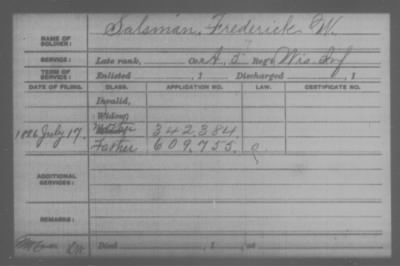 NAME OF SOLDIER: Salsman, Frederick W.
SERVICE: Late rank, Co. A, 5 Reg't Wis. Inf
TERM OF SERVICE: Enlisted , 1 Discharged , 1
DATE OF FILING. CLASS. APPLICATION NO. LAW. CERTIFICATE NO.
Invalid,
Widow,
1886 July 17. Mother 342,384.
Father 609,755.
ADDITIONAL SERVICES:
REMARKS:
Died , 1 , at